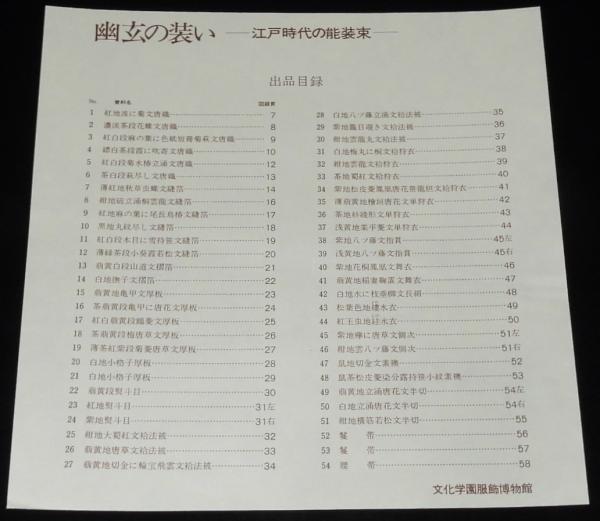 幽玄の装い ―江戸時代の能装束―
出品目録
No. 資料名 図録頁
1 紅地流に菊文唐織 7
2 濃淡茶段花蝶文唐織 8
3 紅白段麻の葉に色紙短冊菊萩文唐織 9
4 縹白茶段霞に吹寄文唐織 10
5 紅白段菊水椿立涌文唐織 12
6 茶白段萩尽し文唐織 13
7 薄紅地秋草虫蝶文縫箔 14
8 紺地破立涌桐雲龍文縫箔 16
9 紅地麻の葉に尾長鳥椿文縫箔 17
10 黒地丸紋尽し文縫箔 18
11 紅白段木目に雪持笹文縫箔 19
12 薄緑茶段小葵霞若松文縫箔 20
13 萠黄白段山道文摺箔 21
14 白地撫子文摺箔 22
15 萠黄地亀甲文厚板 23
16 茶萠黄段亀甲に唐花文厚板 24
17 紅白萠黄段鶴菱文厚板 25
18 茶萠黄段檜唐草文厚板 26
19 薄茶紅紫段菊菱唐草文厚板 27
20 白地小格子厚板 28
21 白地小格子厚板 29
22 萠黄段熨斗目 30
23 紅地熨斗目 31左
24 紫地熨斗目 31右
25 紺地大蜀紅文袷法被 32
26 萠黄地唐草文袷法被 33
27 萠黄地切金に輪宝飛雲文袷法被 34
28 白地八ツ藤立涌文袷法被 35
29 紫地籠目覗き文袷法被 36
30 紺地雲龍丸文袷法被 37
31 白地梅丸に桐文袷狩衣 38
32 紺地雲龍文袷狩衣 39
33 茶地蜀紅文袷狩衣 40
34 紫地松皮菱鳳凰唐花蟹龍紋文袷狩衣 41
35 薄萠黄地檜垣唐花文単狩衣 42
36 茶地杉綾形文単狩衣 43
37 浅黄地業平菱文単狩衣 44
38 紫地八ツ藤文指貫 45左
39 浅黄地八ツ藤文指貫 45右
40 紫地花桐鳳凰文舞衣 46
41 萠黄地稲妻鞠文舞衣 47
42 白地水に枝垂柳文長絹 48
43 松葉色地縷水衣 49
44 紅玉虫地絓水衣 50
45 紫地欅に唐草文側次 51左
46 紺地雲八ツ藤文側次 51右
47 鼠地切金文素襖 52
48 鼠茶松皮菱染分露持笹小紋素襖 53
49 萠黄地立涌唐花文半切 54左
50 白地立涌唐花文半切 54右
51 紺地横筋若松文半切 55
52 鬘帯 56
53 鬘帯 57
54 腰帯 58
文化学園服飾博物館